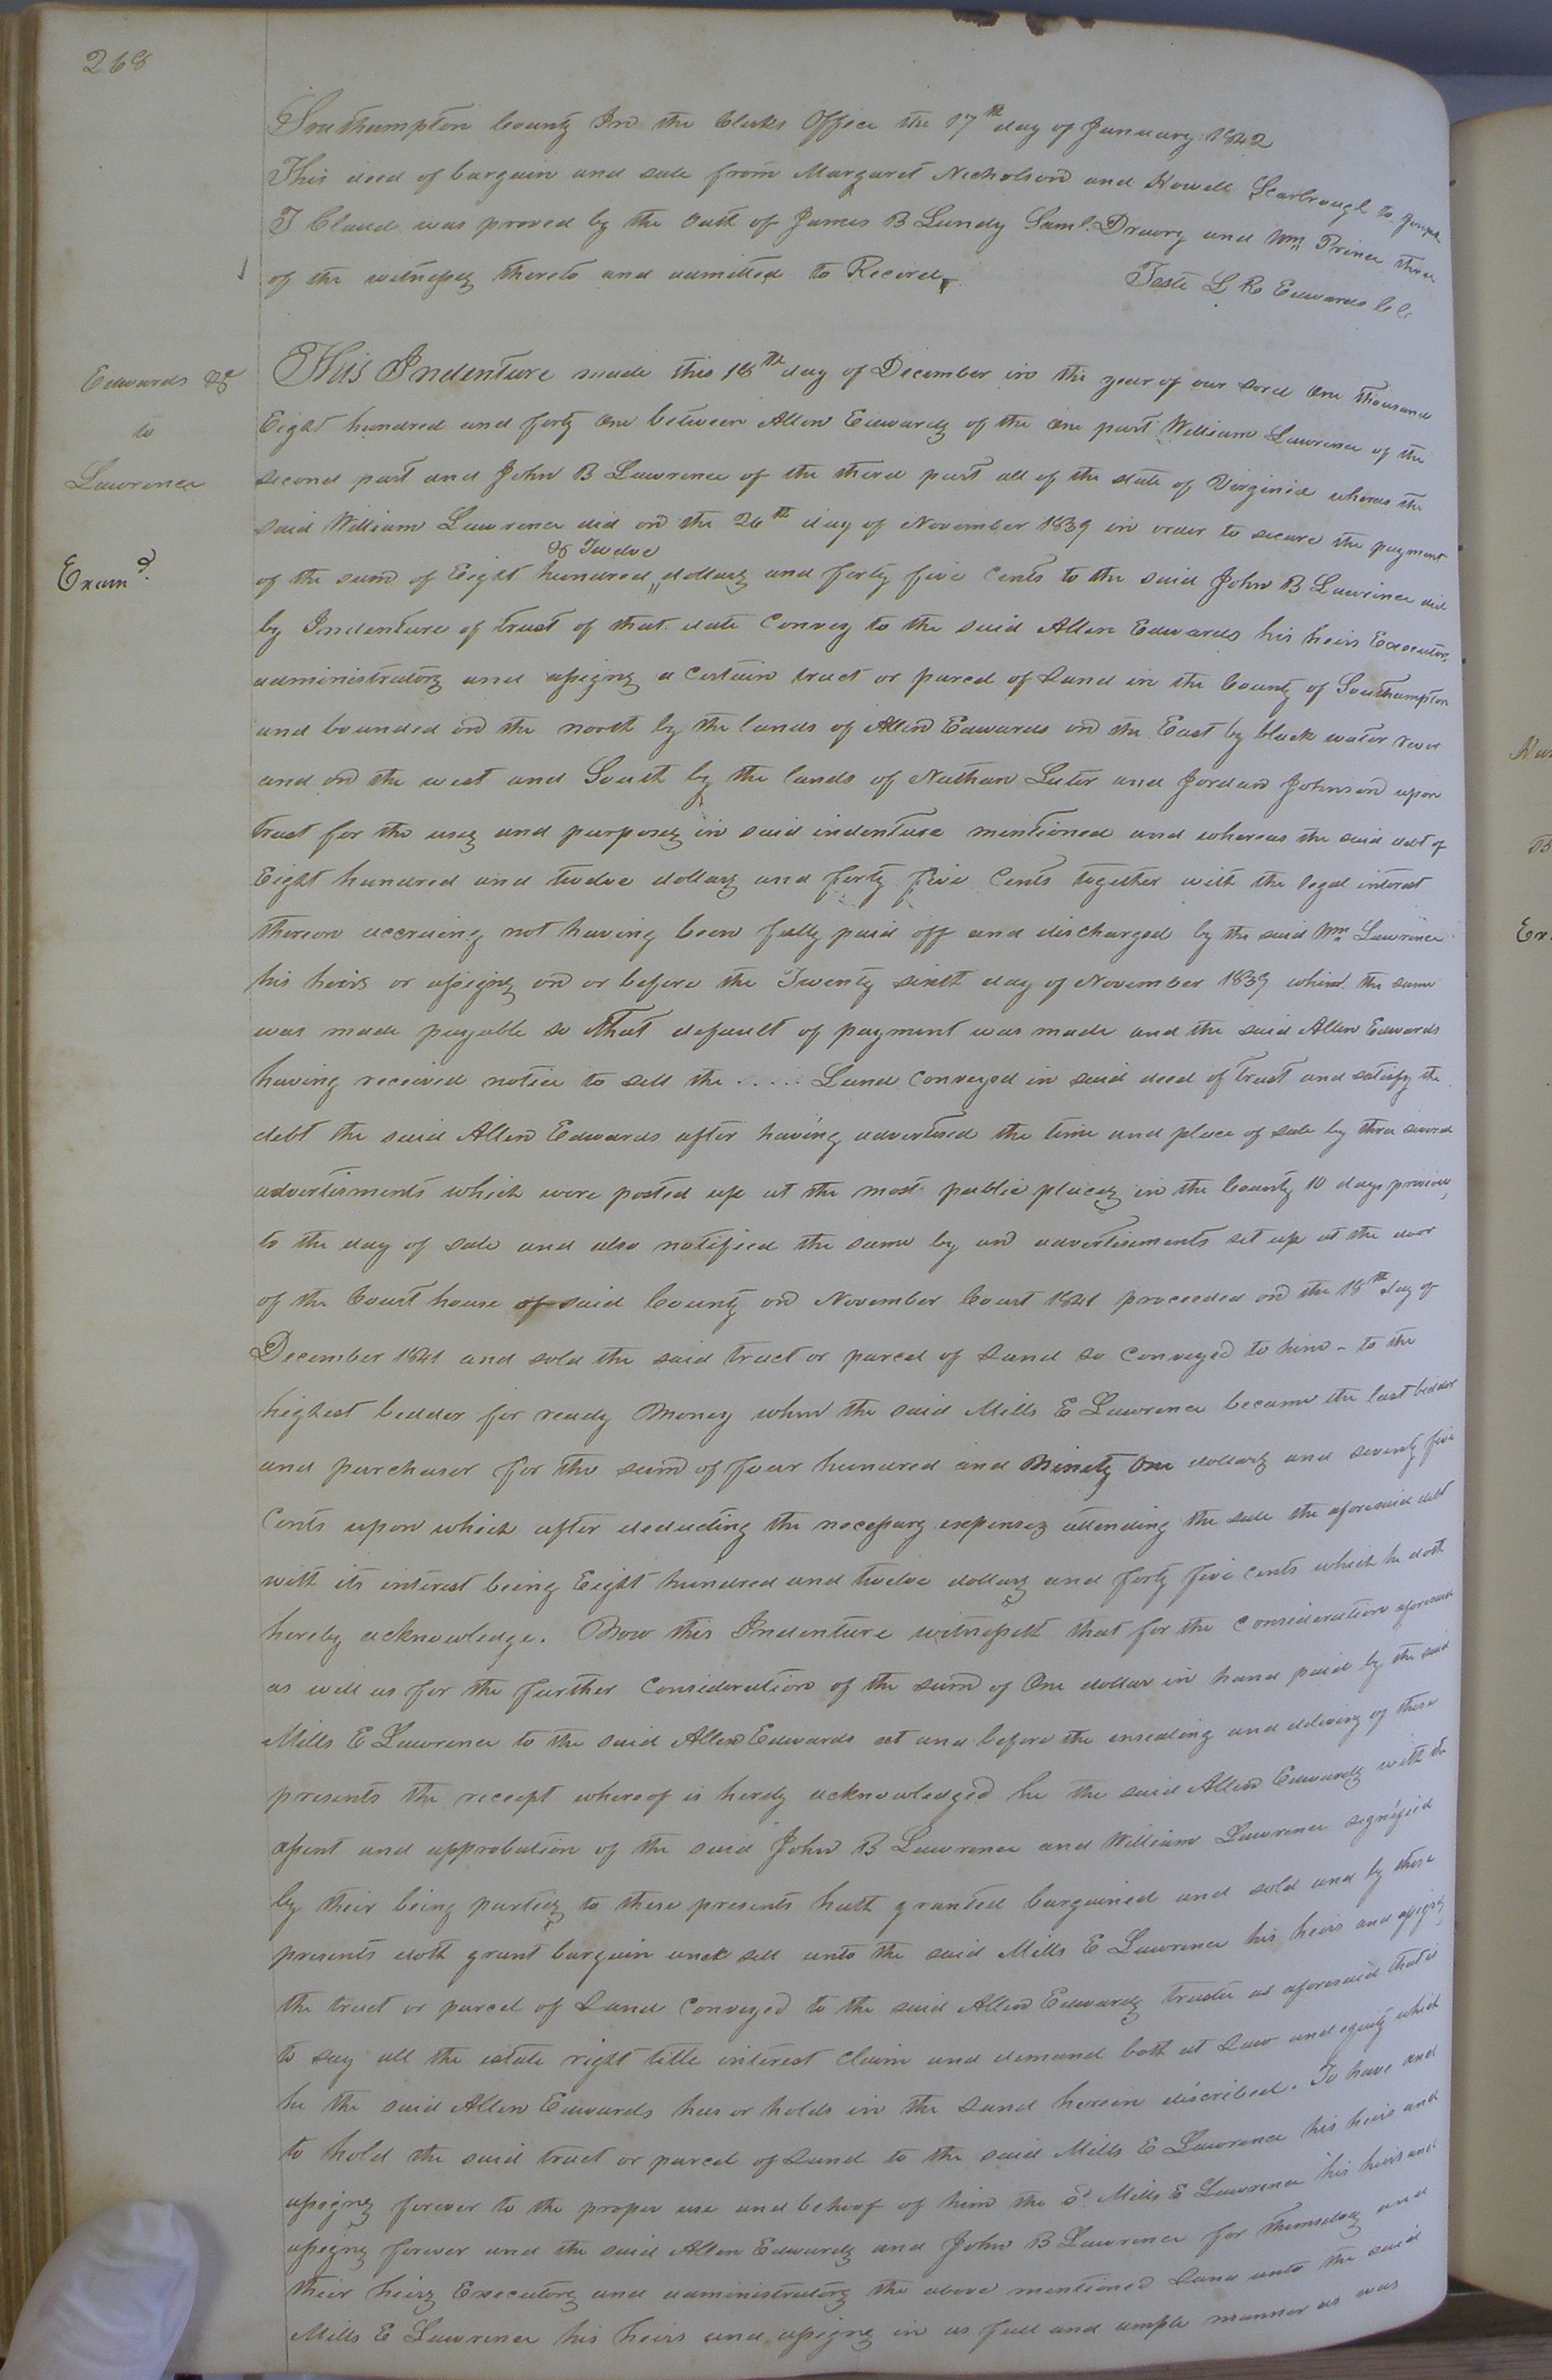 268
Southampton County In the Clerks Office the 17th day of January 1842
This deed of bargain and sale from Margaret Nicholson and Howell Scarbrough to Joseph
T Claud was proved by the oath of James B Lundy Saml. Drewry and Wm Prince three
of the witnesses thereto and admitted to Record
Teste L R Edwards Cl C
Edwards &c
to
Lawrence
Examd.
This Indenture made this 18th day of December in the year of our Lord One thousand
Eight hundred and forty One between Allen Edwards of the One part William Lawrence of the
second part and John B Lawrence of the third part all of the state of Virginia whereas the
said William Lawrence did on the 26th day of November 1839 in order to secure the payment
& Twelve
of the sum of Eight hundred dollars and forty five Cents to the said John B Lawrence did
by Indenture of trust of that date Convey to the said Allen Edwards his heirs Executors
administrators and assigns a Certain tract or parcel of Land in the County of Southampton
and bounded on the north by the lands of Allen Edwards on the East by black water river
and on the west and South by the lands of Nathan Luter and Jordan Johnson upon
trust for the uses and purposes in said indenture mentioned and whereas the said debt of
Eight hundred and twelve dollars and forty five Cents together with the legal interest
thereon accruing not having been fully paid off and discharged by the said Wm Lawrence
his heirs or assigns on or before the Twenty sixth day of November 1839 when the same
was made payable so that default of payment was made and the said Allen Edwards
having received notice to sell the ..... Land Conveyed in said deed of trust and satisfy the
debt the said Allen Edwards after having advertised the time and place of sale by three several
advertisments which were posted up at the most public places in the County 10 days previous
to the day of sale and also notified the same by an advertisements set up at the door
of the Court house of said County on November Court 1841 proceeded on the 18th day of
December 1841 and sold the said tract or parcel of Land so Conveyed to him - to the
highest bidder for ready Money when the said Mills E Lawrence became the last bidder
and purchaser for the sum of four hundred and Ninety One dollars and seventy five
Cents upon which after deducting the necessary expenses attending the sale the aforesaid debt
with its interest being Eight hundred and twelve dollars and forty five cents which he doth
hereby acknowledge. Now this Indenture witnesseth that for the Consideration aforesaid
as well as for the further Consideration of the sum of One dollar in hand paid by the said
Mills E Lawrence to the said Allen Edwards at and before the ensealing and delivery of these
presents the receipt whereof is hereby acknowledged he the said Allen Edwards with the
assent and approbation of the said John B Lawrence and William Lawrence signified
by their being parties to these presents hath granted bargained and sold and by these
presents doth grant bargain and sell unto the said Mills E Lawrence his heirs and assigns
the tract or parcel of Land Conveyed to the said Allen Edwards trustee as aforesaid that is
to say all the estate right title interest Claim and demand both at Law and equity which
he the said Allen Edwards has or holds in the Land herein discribed. To have and
to hold the said tract or parcel of Land to the said Mills E Lawrence his heirs and
assigns forever to the proper use and behoof of him the sd. Mills E Lawrence his heirs and
assigns forever and the said Allen Edwards and John B Lawrence for themselves and
their heirs Executors and administrators the above mentioned Land unto the said
Mills E Lawrence his heirs and assigns in as full and ample manner as was